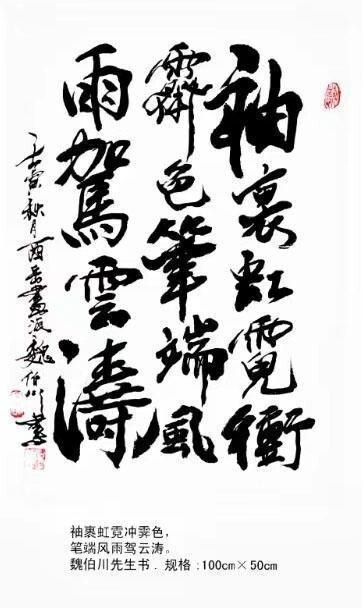 袖裏虹霓衝
霽色筆端風
雨駕雲濤
壬寅秋月西岳畫派魏伯川書
袖裹虹霓冲霁色,
笔端风雨驾云涛。
魏伯川先生书 . 规格 :100cm×50cm